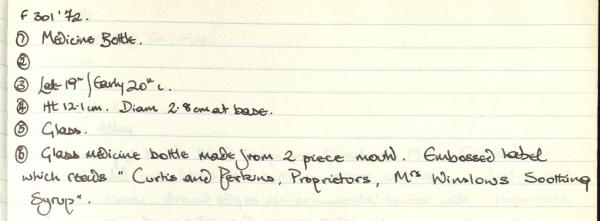 F 301'72.
① Medicine Bottle.
②
③ Late 19th / Early 20th c.
④ Ht 12.1cm. Diam 2.8cm at base.
⑤ Glass.
⑥ Glass medicine bottle made from 2 piece mould. Embossed label
which reads " Curtis and Perkins, Proprietors, Mrs Winslows Soothing
Syrup".